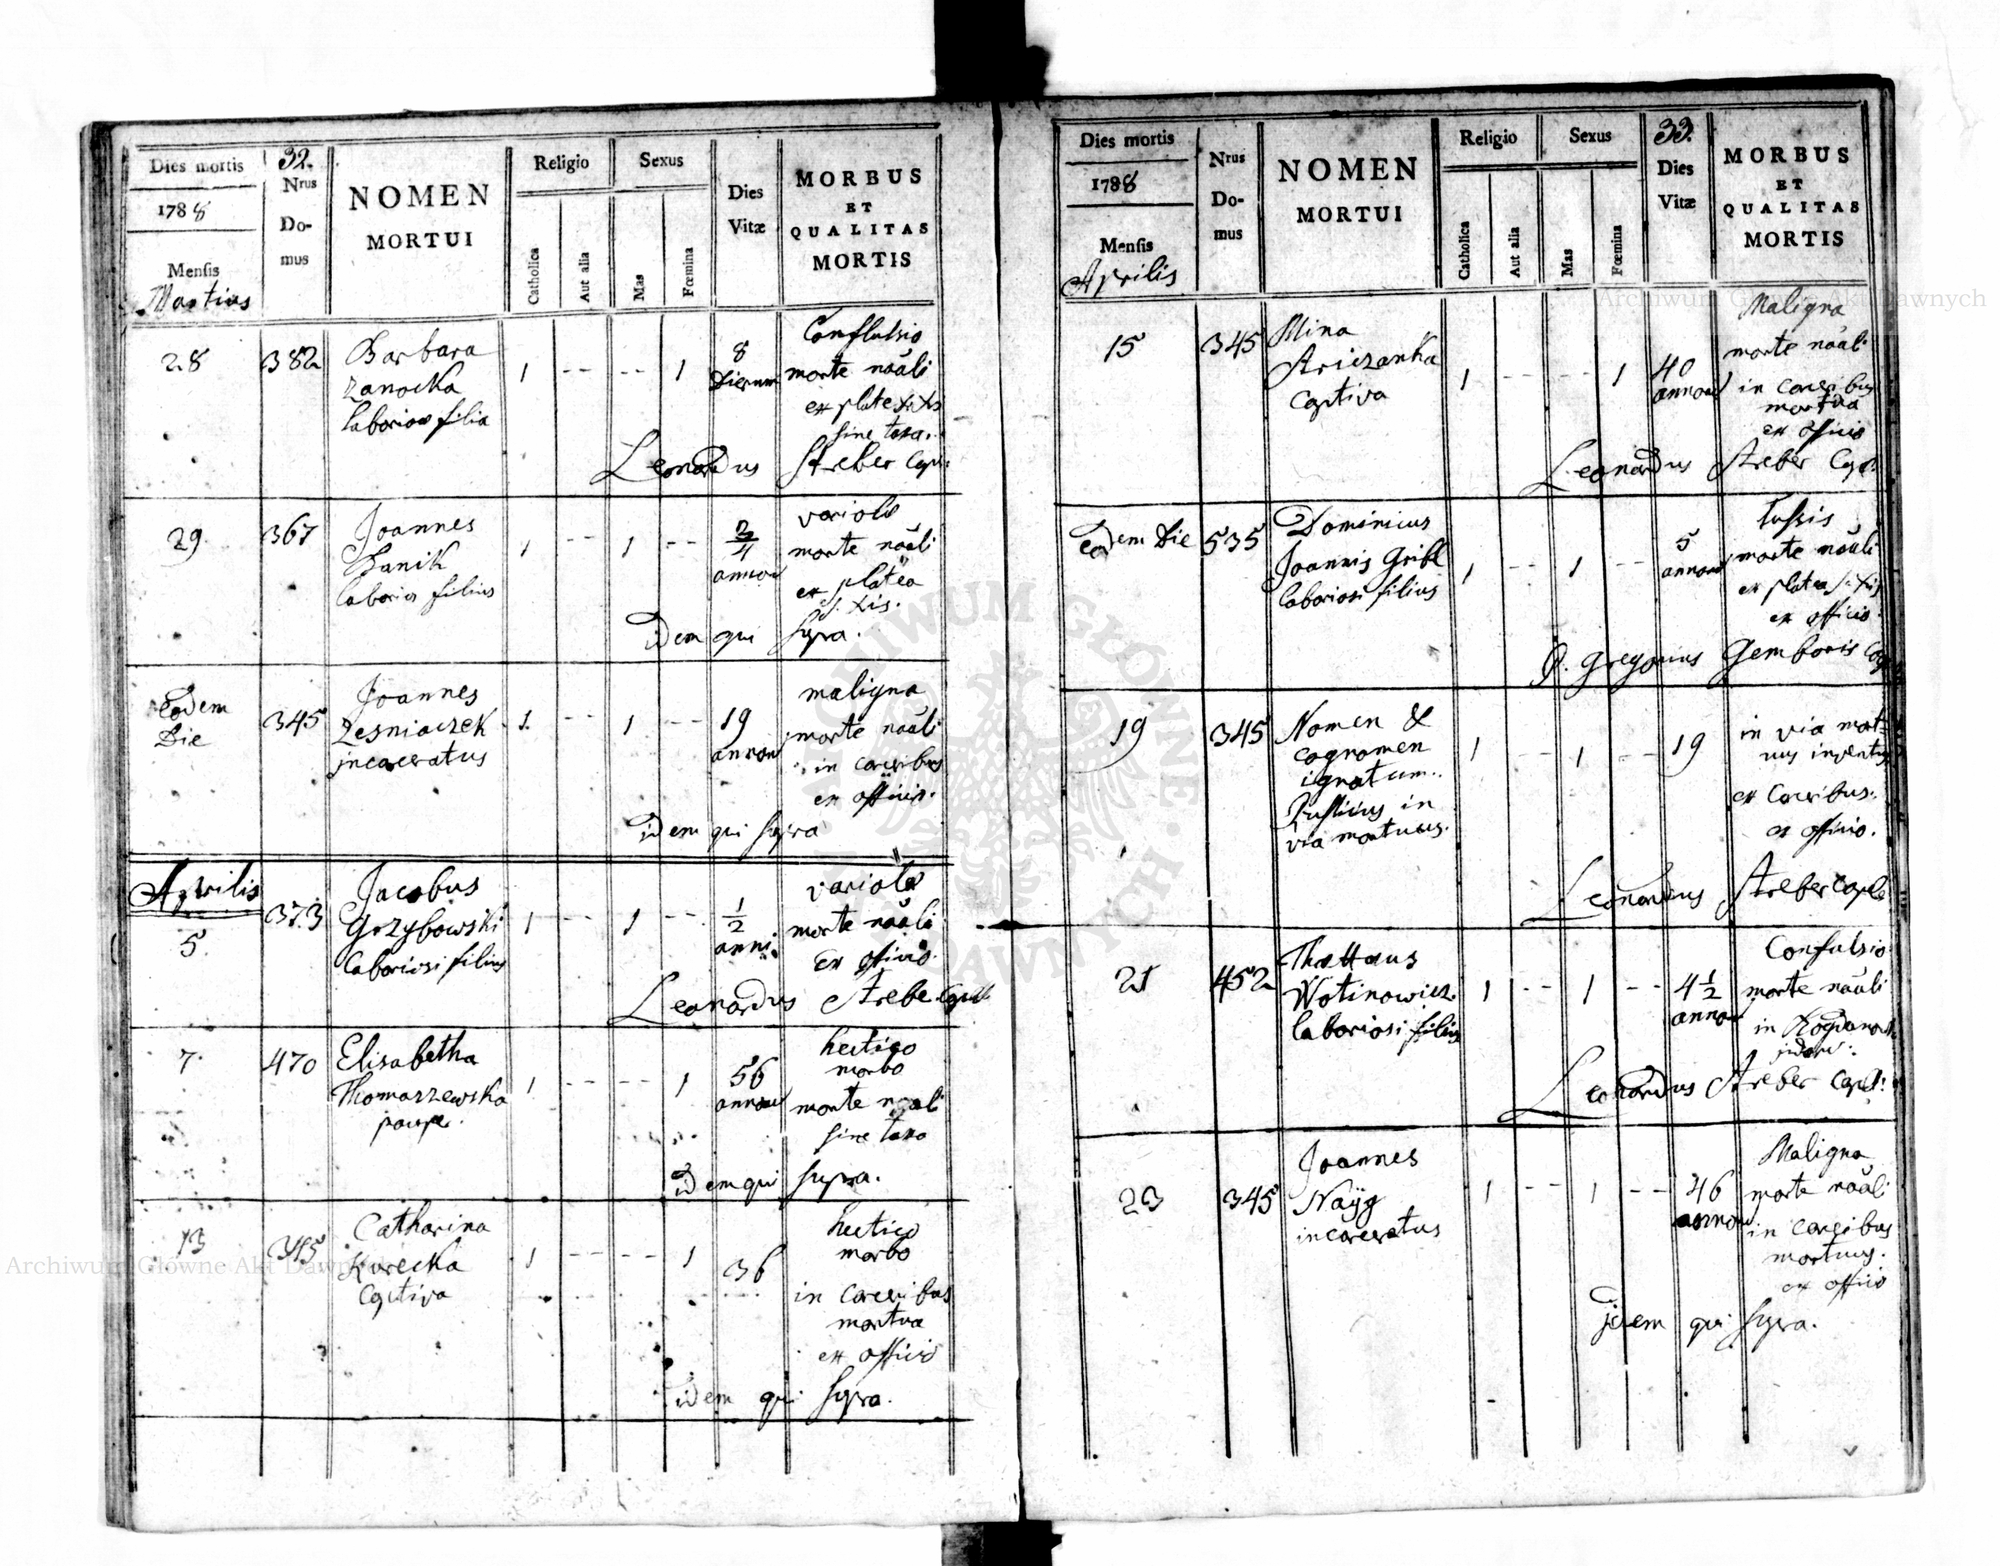 Dies mortis
1788
Mensis
Martius
32.
Nrus
Do-
mus
NOMEN
MORTUI
Religio
Catholica
Aut alia
Sexus
Mas
Fœmina
Dies
Vitæ
MORBUS
ET
QUALITAS
MORTIS
28
382
Barbara
Zanocka
laboriosi filia
1 -- -- 1
8
Dierum
Conflulsio
morte nãäli
ex platea
sine taxa.
Leonardus Streber Capl:
29
367
Joannes
Banik
laborios filius
1 -- 1 --
3/4
annor
variolis
morte nãäli
ex platea
S. Xis.
idem qui supra.
Eodem
Die
345
Joannes
Lesniaczek
incarceratus
1. -- 1 --
19
annor
maligna
morte nãäli
in carceribus
ex officio.
idem qui supra
Aprilis
5
373
Jacobus
Grzybowski
laboriosi filius
1 -- 1 --
1/2
anni
variola
morte nãäli
Ex officio.
Leonardus Streber Capll
7.
470
Elisabetha
Thomaszewska
paupe.
1 -- -- 1
56
annor
hectico
morbo
morte nãäli
sine taxa
idem qui supra.
13
345
Catharina
Kurecka
Captiva
1 -- -- 1
36
hectico
morbo
in carceribus
mortua
ex officio
idem qui supra.
Dies mortis
1788
Mensis
Aprilis
Nrus
Do-
mus
NOMEN
MORTUI
Religio
Catholica
Aut alia
Sexus
Mas
Fœmina
33.
Dies
Vitæ
MORBUS
ET
QUALITAS
MORTIS
15
345
Mina
Ariczanka
Captiva
1 -- -- 1
40
annor
Maligna
morte nãäli
in carceribus
mortua
ex officio
Leonardus Streber Capl:
eodem Die
535
Dominicus
Joannis Gribl
laboriosi filius
1 -- 1 --
5
annor
Tussis
morte nãäli
ex platea S. Xis
ex officio.
P. Gregorius Gemboris Cap
19
345
Nomen &
cognomen
ignotum..
Rusticus in
via mortuus.
1 -- 1 --
19
in via mort-
uus inventus
ex Carceribus.
ex officio.
Leonardus Streber Caple
21
452
Thattaus
Wotinowicz
laboriosi filius
1 -- 1 --
4 1/2
annor
Confulsio
morte nãäli
in
Leonardus Streber Capl:
23
345
Joannes
Naÿg
incarceratus
1 -- 1 --
46
annor
Maligna
morte nãäli
in carceribus
mortuus.
ex officio
jdem qui supra.
Archiwum Główne Akt Dawnych
Archiwum Główne Akt Dawnych
ARCHIWUM GŁÓWNE AKT DAWNYCH